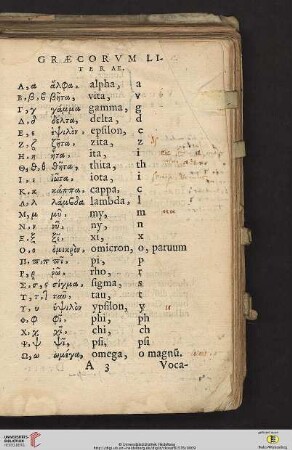 GRÆCORVM LI-
TERAE.
Α, α ἄλφα, alpha, a
Β, β, ϐ βῆτα, vita, v
Γ, γ γάμμα gamma, g
Δ, δ δέλτα, delta, d
Ε, ε ἐψιλὸν epsilon, e
Ζ, ζ ζῆτα, zita, z
Η, η ἦτα, ita, i
Θ, θ, ϑ θῆτα, thita, th
Ι, ι ἰῶτα, iota, i
Κ, κ κάππα, cappa, c
Λ, λ λάμβδα lambda, l
Μ, μ μῦ, my, m
Ν, ν νῦ, ny, n
Ξ, ξ ξῖ, xi, x
Ο, ο ὀμικρὸν, omicron, o, paruum
Π, π πῖ, pi, p
Ρ, ρ ῥῶ, rho, r
Σ, σ, ς σίγμα, sigma, s
Τ, τ, ταυ, tau, t
Υ, υ ὐψιλὸν ypsilon, y
Φ, φ φῖ, phi, ph
Χ, χ χῖ, chi, ch
Ψ, ψ ψῖ, psi, ps
Ω, ω ωμέγα, omega, o magnũ.
A 3 Voca-
© Universitätsbibliothek Heidelberg